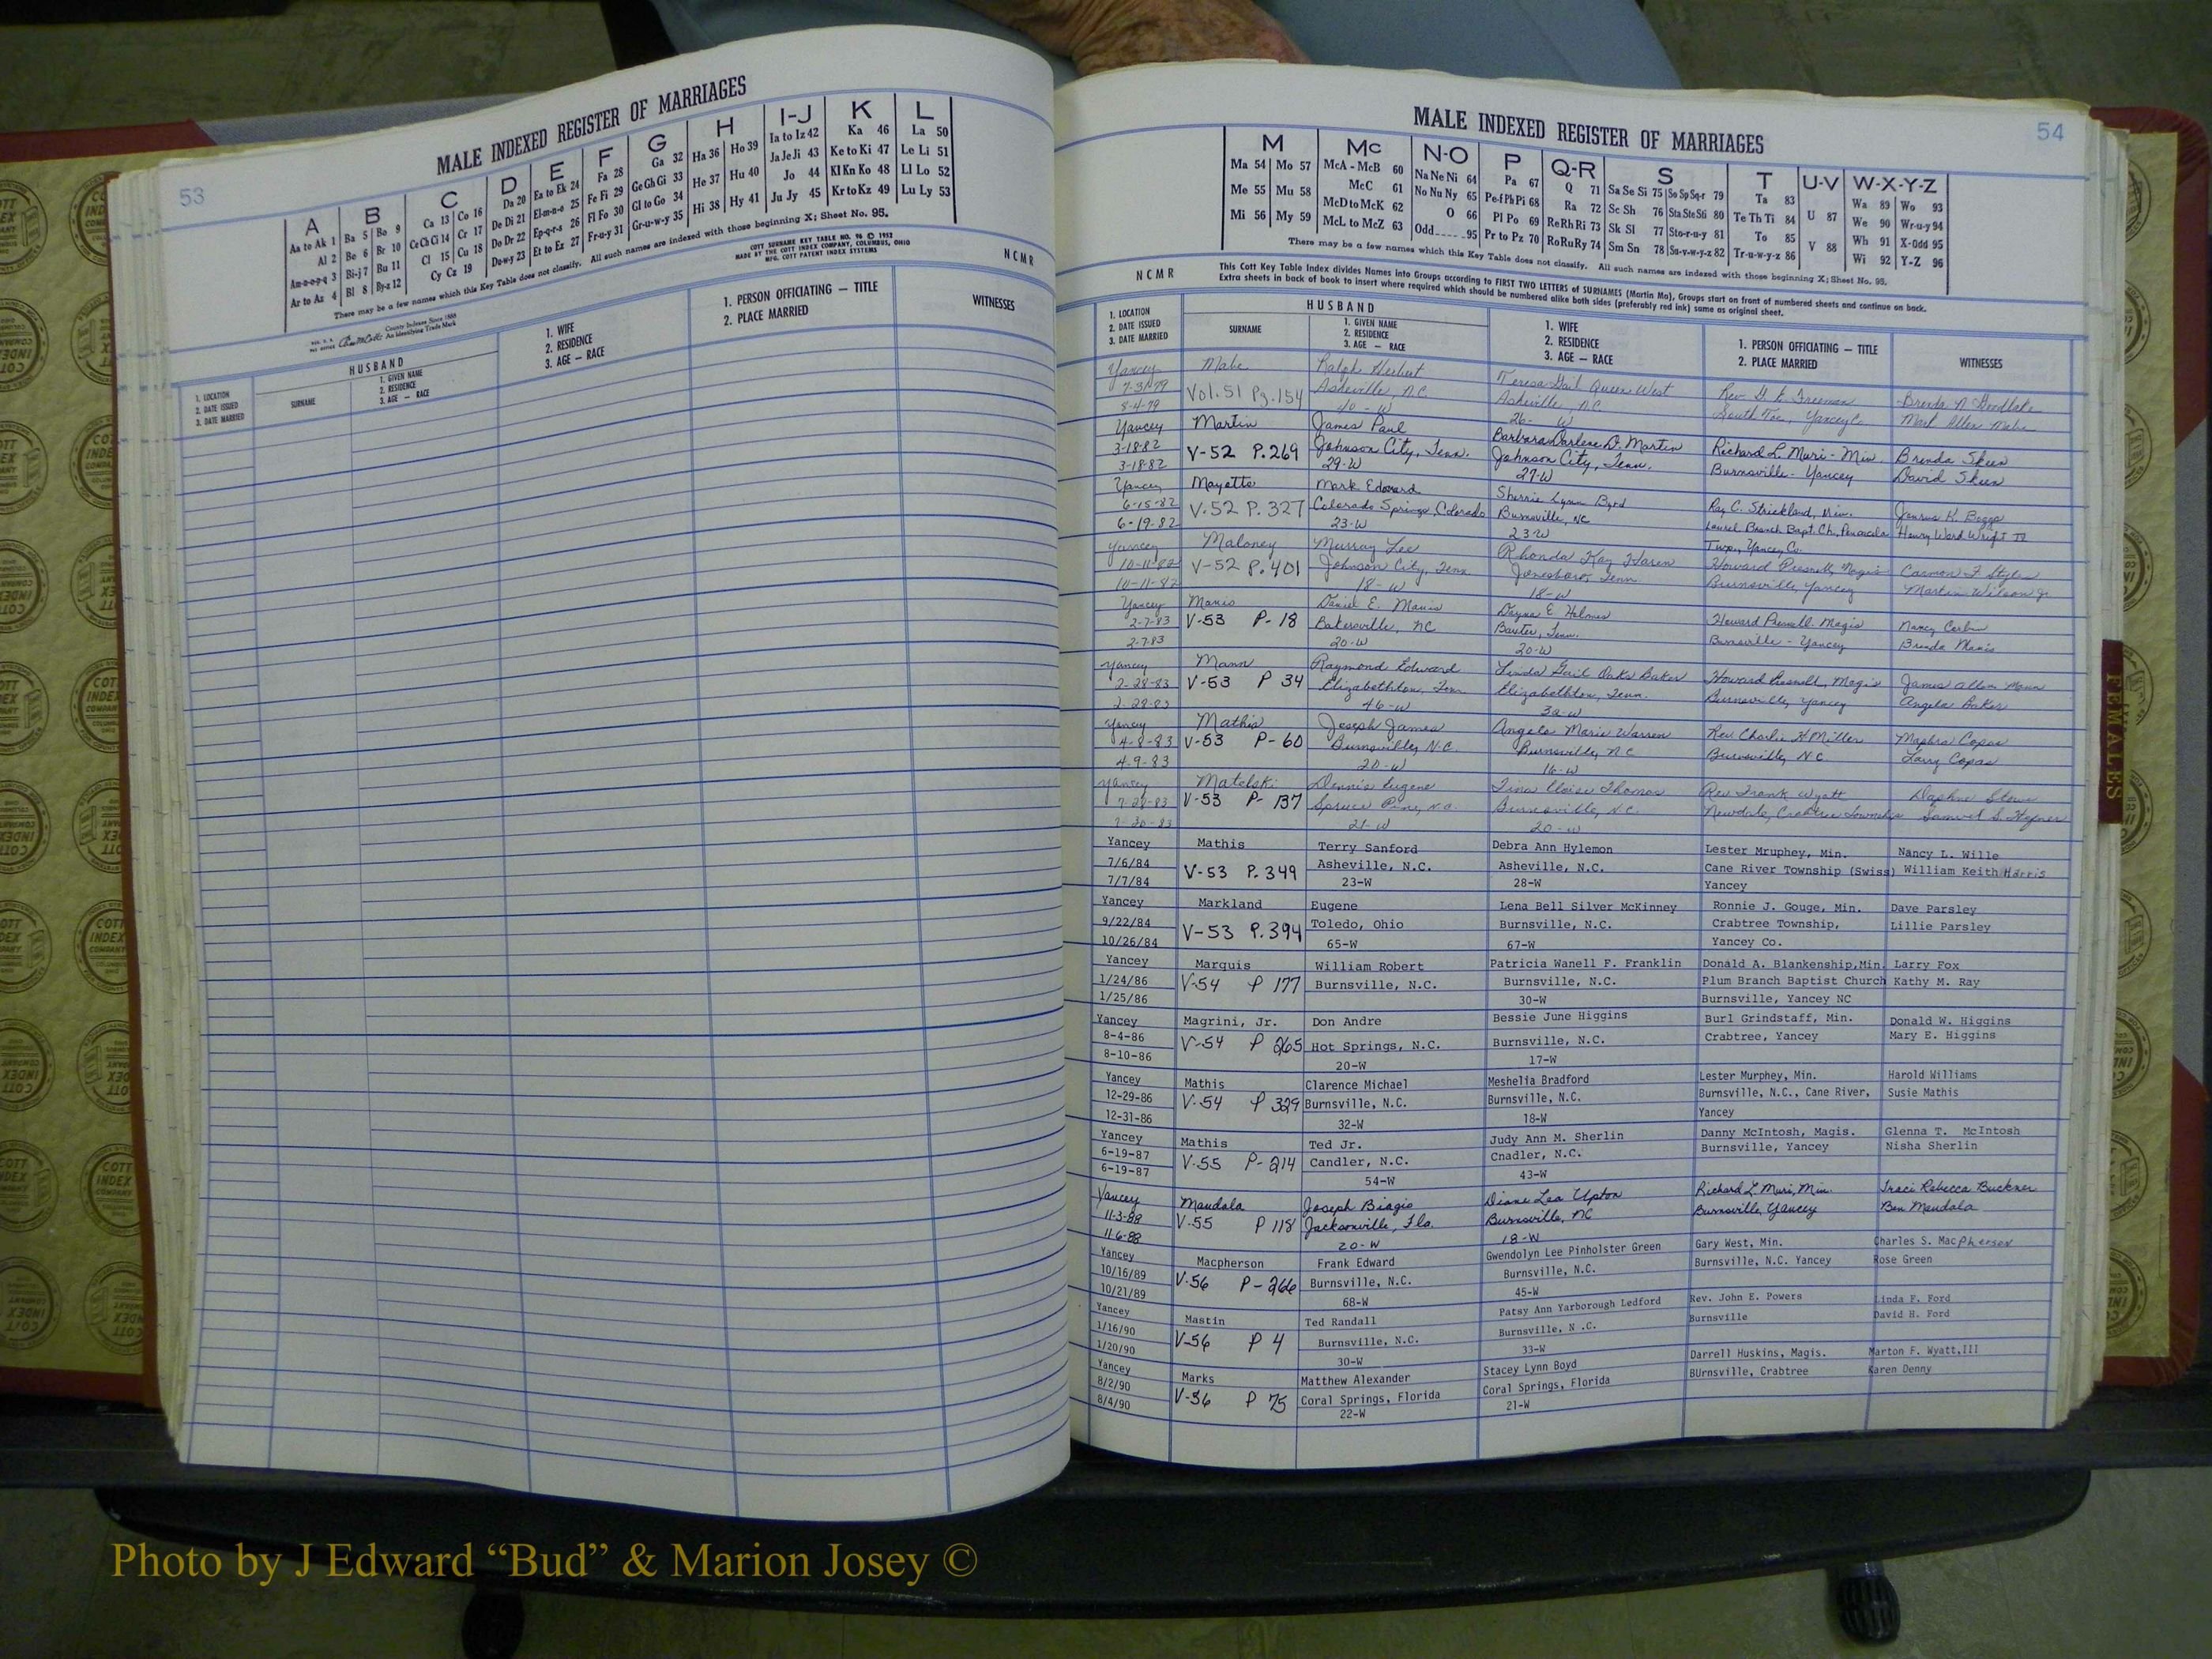 53
MALE INDEXED REGISTER OF MARRIAGES
A B C D E F G H I-J K L
Aa to Ak 1 Ba 5 Bo 9 Ca 13 Co 16 Da 20 Ea to Ek 24 Fa 28 Ga 32 Ha 36 Ho 39 Ia to Iz 42 Ka 46 La 50
Al 2 Be 6 Br 10 Ce Ch Ci 14 Cr 17 De Di 21 El-m-n-o 25 Fe Fi 29 Ge Gh Gi 33 He 37 Hu 40 Ja Je Ji 43 Ke to Ki 47 Le Li 51
Am-n-o-p-q 3 Bi-j 7 Bu 11 Cl 15 Cu 18 Do Dr 22 Ep-q-r-s 26 Fl Fo 30 Gl to Go 34 Hi 38 Hy 41 Jo 44 Kl Kn Ko 48 Ll Lo 52
Ar to Az 4 Bl 8 By-z 12 Cy Cz 19 Du-w-y 23 Et to Ez 27 Fr-u-y 31 Gr-u-w-y 35 Ju Jy 45 Kr to Kz 49 Lu Ly 53
There may be a few names which this Key Table does not classify. All such names are indexed with those beginning X; Sheet No. 95.
COTT SURNAME KEY TABLE NO. 96 © 1952
MADE BY THE COTT INDEX COMPANY, COLUMBUS, OHIO
MFG. COTT PATENT INDEX SYSTEMS
N C M R
County Indexes Since 1888
An Identifying Trade Mark
1. LOCATION
2. DATE ISSUED
3. DATE MARRIED
HUSBAND
SURNAME
1. GIVEN NAME
2. RESIDENCE
3. AGE — RACE
1. WIFE
2. RESIDENCE
3. AGE — RACE
1. PERSON OFFICIATING — TITLE
2. PLACE MARRIED
WITNESSES
54
MALE INDEXED REGISTER OF MARRIAGES
M Mc N-O P Q-R S T U-V W-X-Y-Z
Ma 54 Mo 57 McA - McB 60 Na Ne Ni 64 Pa 67 Q 71 Sa Se Si 75 So Sp Sq-r 79 Ta 83 Wa 89 Wo 93
Me 55 Mu 58 McC 61 No Nu Ny 65 Pe-f Ph Pi 68 Ra 72 Sc Sh 76 Sta Ste Sti 80 Te Th Ti 84 U 87 We 90 Wr-u-y 94
Mi 56 My 59 McD to McK 62 O 66 Pl Po 69 Re Rh Ri 73 Sk Sl 77 Sto-r-u-y 81 To 85 Wh 91 X-Odd 95
McL to McZ 63 Odd 95 Pr to Pz 70 Ro Ru Ry 74 Sm Sn 78 Su-v-w-y-z 82 Tr-u-w-y-z 86 V 88 Wi 92 Y-Z 96
There may be a few names which this Key Table does not classify. All such names are indexed with those beginning X; Sheet No. 95.
N C M R
This Cott Key Table Index divides Names into Groups according to FIRST TWO LETTERS of SURNAMES (Martin Ma), Groups start on front of numbered sheets and continue on back.
Extra sheets in back of book to insert where required which should be numbered alike both sides (preferably red ink) same as original sheet.
1. LOCATION
2. DATE ISSUED
3. DATE MARRIED
HUSBAND
SURNAME
1. GIVEN NAME
2. RESIDENCE
3. AGE — RACE
1. WIFE
2. RESIDENCE
3. AGE — RACE
1. PERSON OFFICIATING — TITLE
2. PLACE MARRIED
WITNESSES
Yancey Ralph Herbert Teresa Gail Queen West Rev
7-31-79 Vol. 51 Pg. 154 Asheville, N.C. Asheville, N.C. South Toe, Yancey
8-4-79 40-W 26- W
Yancey Martin James Paul Barbara Darlene D. Martin Richard L. Muri - Min. Brenda Skeen
3-18-82 V-52 P. 269 Johnson City, Tenn. Johnson City, Tenn. Burnsville - Yancey David Skeen
3-18-82 29-W 27-W
Yancey Mayette Mark Edward Sherrie Lynn Byrd Ray C. Strickland, Min.
6-15-82 V-52 P. 327 Colorado Springs, Colorado Burnsville, NC Laurel Branch Bapt. Ch., Pensacola Henry Ward Wright
6-19-82 23-W 23-W Twp., Yancey Co.
Yancey Maloney Murray Lee Rhonda Kay Howard Presnell, Magis
10-11-82 V-52 P. 401 Johnson City, Tenn. Jonesboro, Tenn. Burnsville, Yancey Martin Wilson Jr
10-11-82 18-W 18-W
Yancey Manis Daniel E. Manis Dayna E. Holmes Howard Presnell Magis Nancy
2-7-83 V-53 P-18 Bakersville, NC Baxter, Tenn. Burnsville - Yancey Brenda Manis
2-7-83 20-W 20-W
Yancey Mann Raymond Edward Linda Gail Oaks Baker Howard Presnell, Magis James Allen Mann
2-28-83 V-53 P 34 Elizabethton, Tenn Elizabethton, Tenn. Burnsville, Yancey Angela Baker
2-28-83 46-W
Yancey Mathis Joseph James Angela Marie Warren Rev Charlie H Miller Copas
4-8-83 V-53 P-60 Burnsville, N.C. Burnsville, NC Burnsville, N.C. Larry Copas
4-9-83 20-W 16-W
Yancey Matelski Dennis Eugene Tina Thomas Rev Frank Wyatt Daphne
7-28-83 V-53 P-137 Spruce Pine, N.C. Burnsville, N.C. Newdale, Crabtree Township Samuel S.
7-30-83 21-W 20-W
Yancey Mathis Terry Sanford Debra Ann Hylemon Lester Mruphey, Min. Nancy L. Wille
7/6/84 V-53 P. 349 Asheville, N.C. Asheville, N.C. Cane River Township (Swiss) William Keith Harris
7/7/84 23-W 28-W Yancey
Yancey Markland Eugene Lena Bell Silver McKinney Ronnie J. Gouge, Min. Dave Parsley
9/22/84 V-53 P. 394 Toledo, Ohio Burnsville, N.C. Crabtree Township, Lillie Parsley
10/26/84 65-W 67-W Yancey Co.
Yancey Marquis William Robert Patricia Wanell F. Franklin Donald A. Blankenship,Min. Larry Fox
1/24/86 V-54 P 177 Burnsville, N.C. Burnsville, N.C. Plum Branch Baptist Church Kathy M. Ray
1/25/86 30-W Burnsville, Yancey NC
Yancey Magrini, Jr. Don Andre Bessie June Higgins Burl Grindstaff, Min. Donald W. Higgins
8-4-86 V-54 P 265 Hot Springs, N.C. Burnsville, N.C. Crabtree, Yancey Mary E. Higgins
8-10-86 20-W 17-W
Yancey Mathis Clarence Michael Meshelia Bradford Lester Murphey, Min. Harold Williams
12-29-86 V-54 P 329 Burnsville, N.C. Burnsville, N.C. Burnsville, N.C., Cane River, Susie Mathis
12-31-86 32-W 18-W Yancey
Yancey Mathis Ted Jr. Judy Ann M. Sherlin Danny McIntosh, Magis. Glenna T. McIntosh
6-19-87 V-55 P-214 Candler, N.C. Cnadler, N.C. Burnsville, Yancey Nisha Sherlin
6-19-87 54-W 43-W
Yancey Mandala Joseph Biagio Diane Lea Upton Richard L. Muri, Min. Traci Rebecca Buckner
11-3-88 V-55 P 118 Jacksonville, Fla. Burnsville, NC Burnsville, Yancey Ben Mandala
11-6-88 20-W 18-W
Yancey Macpherson Frank Edward Gwendolyn Lee Pinholster Green Gary West, Min. Charles S. Macpherson
10/16/89 V-56 P-266 Burnsville, N.C. Burnsville, N.C. Burnsville, N.C. Yancey Rose Green
10/21/89 68-W 45-W
Yancey Mastin Ted Randall Patsy Ann Yarborough Ledford Rev. John E. Powers Linda F. Ford
1/16/90 V-56 P 4 Burnsville, N.C. Burnsville, N .C. Burnsville David H. Ford
1/20/90 30-W 33-W
Yancey Marks Matthew Alexander Stacey Lynn Boyd Darrell Huskins, Magis. Marton F. Wyatt,III
8/2/90 V-56 P 75 Coral Springs, Florida Coral Springs, Florida BUrnsville, Crabtree Karen Denny
8/4/90 22-W 21-W
FEMALES
Photo by J Edward “Bud” & Marion Josey ©